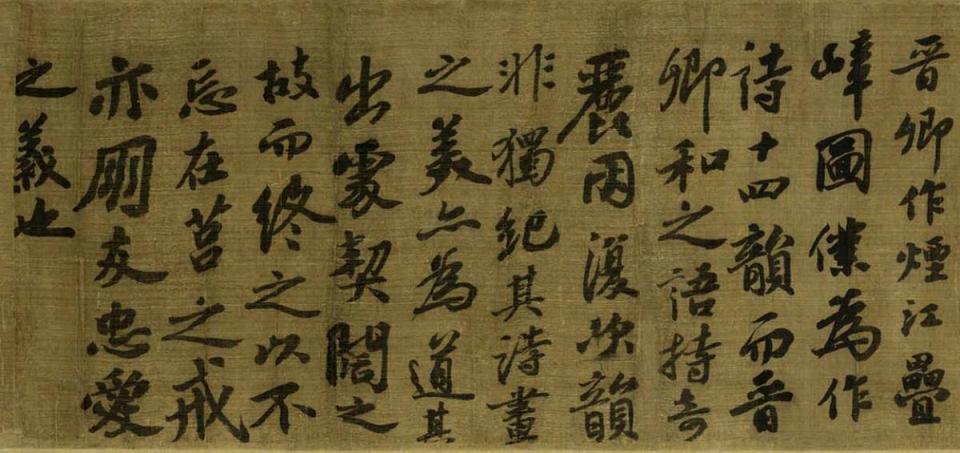 晉卿作煙江疊
嶂圖僕為作
詩十四韻而晉
卿和之語特奇
麗因復次韻
非獨紀其詩畫
之美亦為道其
出處契闊之
故而終之以不
忘在莒之戒
亦朋友忠愛
之義也